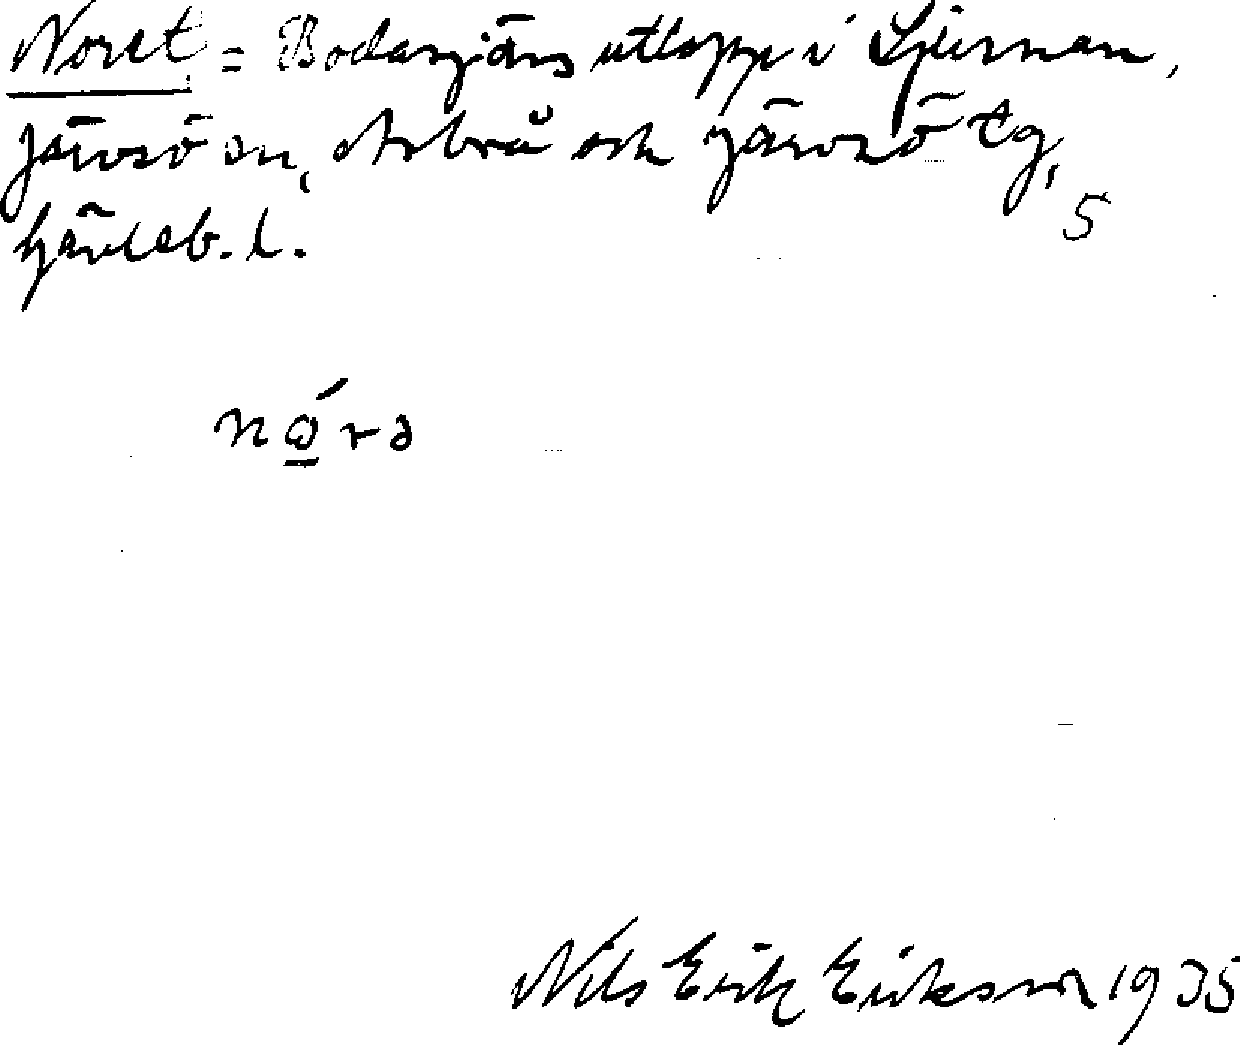 Noret = Bodasjöns utlopp i Ljusnan,
Järvsö sn, Arbrå och Järvsö tg,
Gävleb. l. S
nó̱rə
Nils Erik Eriksson 1935